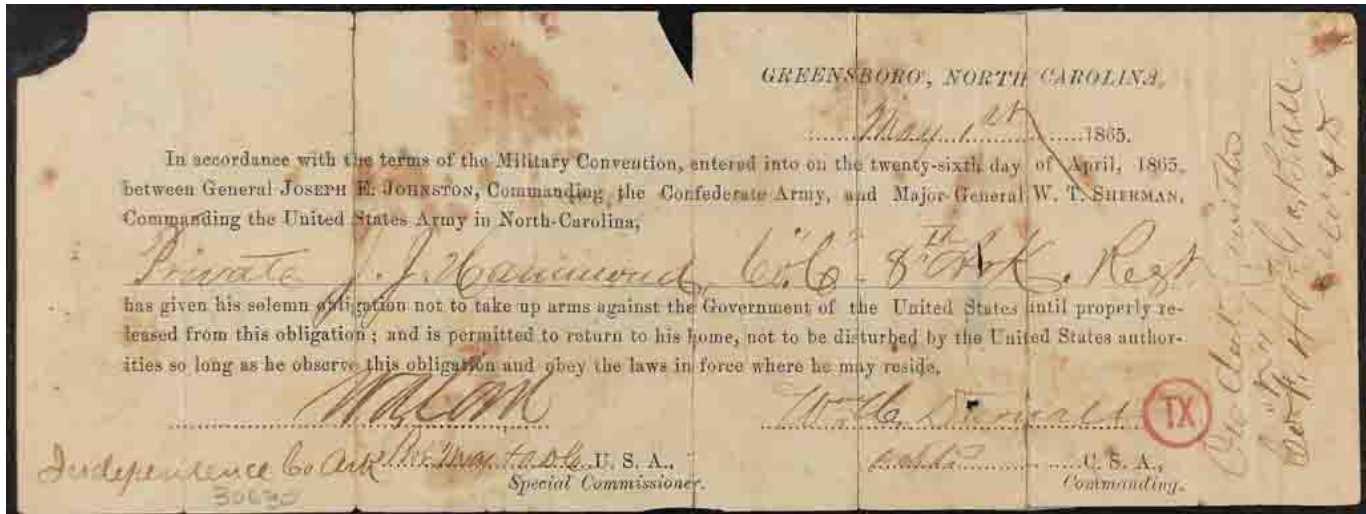 GREENSBORO', NORTH CAROLINA,
May 1st 1865.
In accordance with the terms of the Military Convention, entered into on the twenty-sixth day of April, 1865,
between General JOSEPH E. JOHNSTON, Commanding the Confederate Army, and Major-General W. T. SHERMAN,
Commanding the United States Army in North-Carolina,
Private J. J. Hammond, Co. "C" 8th Ark. Regt
has given his solemn obligation not to take up arms against the Government of the United States until properly re-
leased from this obligation; and is permitted to return to his home, not to be disturbed by the United States author-
ities so long as he observe this obligation and obey the laws in force where he may reside.
U. S. A., C. S. A.,
Special Commissioner. Commanding.
Independence Co Ark
30630
TX